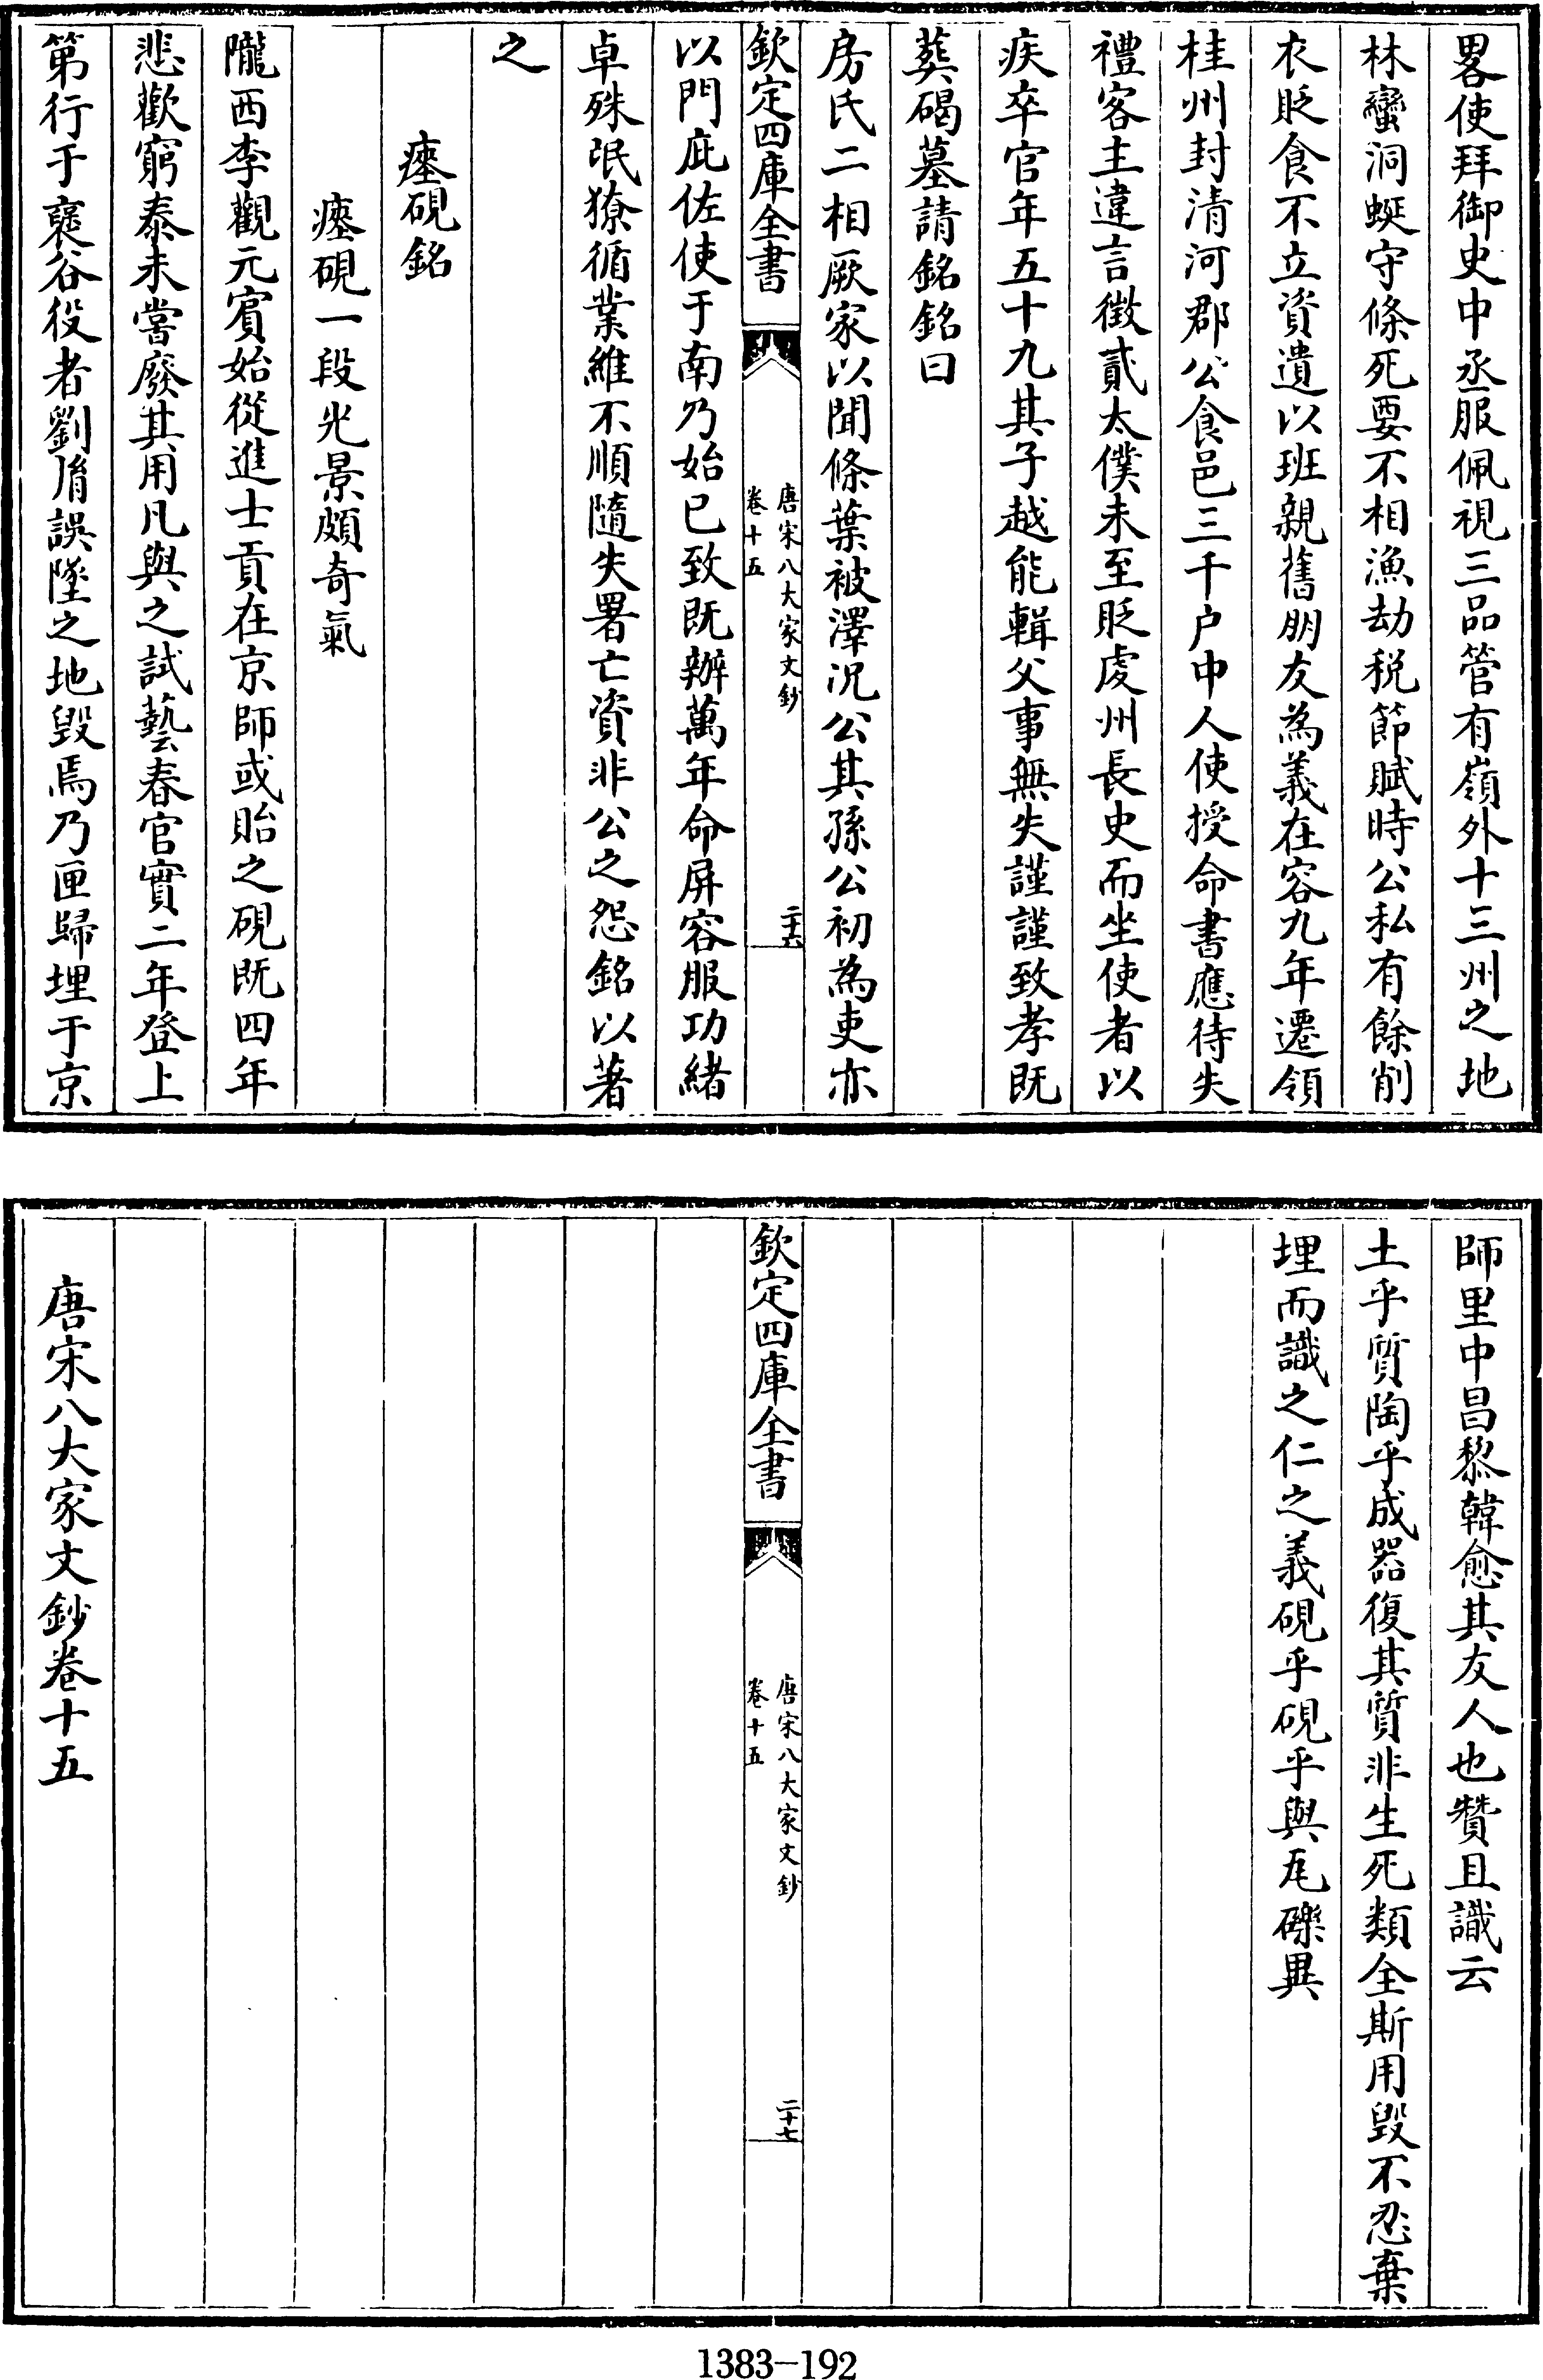 畧使拜御史中丞服佩視三品管有嶺外十三州之地
林蠻洞蜒守條死要不相漁劫税節賦時公私有餘削
衣貶食不立資遺以班親舊朋友為義在容九年遷領
桂州封清河郡公食邑三千户中人使授命書應待失
禮客主違言徵貳太僕未至貶虔州長史而坐使者以
疾卒官年五十九其子越能輯父事無失謹謹致孝既
葬碣墓請銘銘曰
房氏二相厥家以聞條葉被澤况公其孫公初為吏亦
欽定四庫全書
唐宋八大家文鈔
卷十五
二十六
以門庇佐使于南乃始已致既辦萬年命屏容服功緒
卓殊氓獠循業維不順隨失署亡資非公之怨銘以著
之
瘞硯銘
瘞硯一段光景頗奇氣
隴西李觀元賓始從進士貢在京師或貽之硯既四年
悲歡窮泰未嘗廢其用凡與之試藝春官實二年登上
第行于褒谷役者劉胤誤墜之地毁焉乃匣歸埋于京
師里中昌黎韓愈其友人也贊且識云
土乎質陶乎成器復其質非生死類全斯用毁不忍棄
埋而識之仁之義硯乎硯乎與瓦礫異
欽定四庫全書
唐宋八大家文鈔
卷十五
二十七
唐宋八大家文鈔卷十五
1383-192